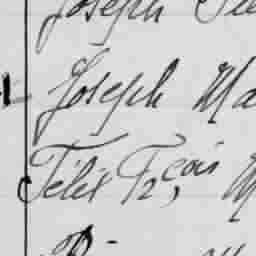 Joseph
Joseph Ma
Félix Frçois M